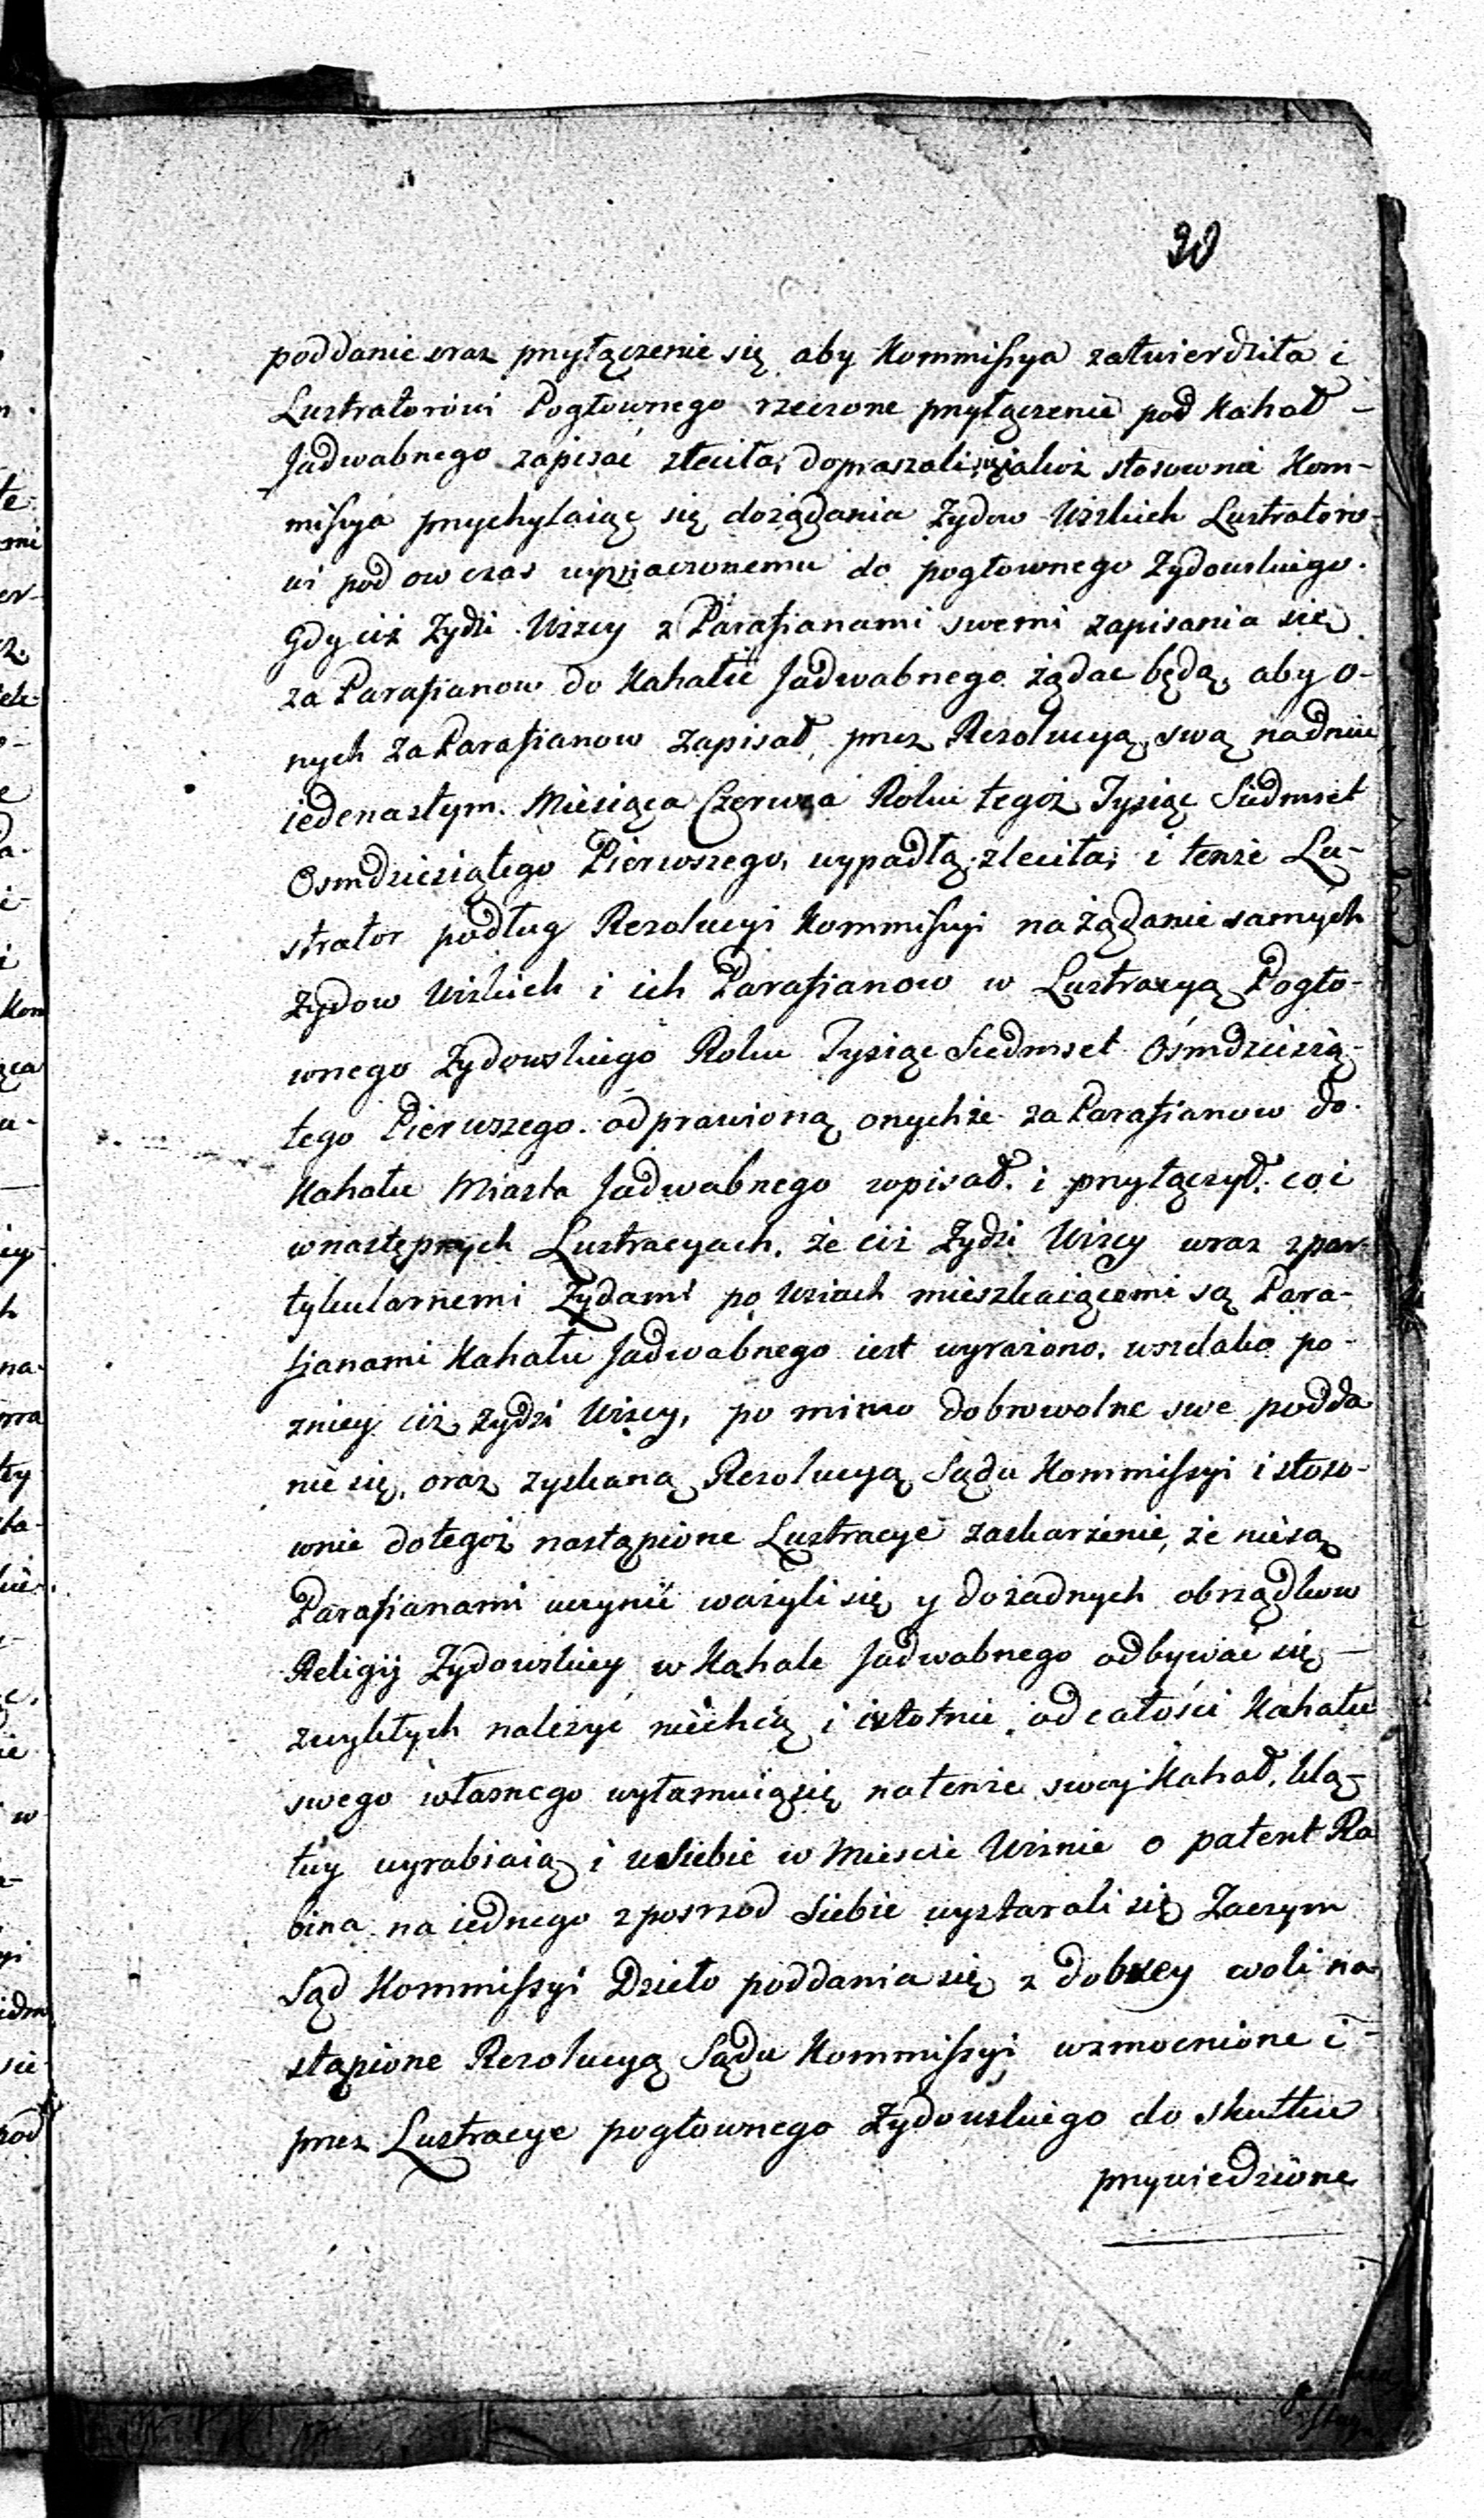 20
poddanie oraz przyłączenie się aby Kommissya zatwierdziła i
Lustratorowi Pogłownego rzeczone przyłączenie pod Kahał –
Jadwabnego zapisać zleciła, dopraszali się jakoż stosownie Kom-
missya przychylaiąc się dożądania Zydow Wizkich Lustratoro-
wi pod ow czas wyznaczonemu do pogłownego Zydowskiego.
Gdy ciż Zydzi Wizcy z Parafianami swemi zapisania się
za Parafianow do Kahału Jadwabnego żądac będą, aby o-
nych za Parafianow zapisał, przez Rezolucyą swą nadniu
iedenastym Miesiąca Czerwca Roku tegoż Tysiąc Siedmset
Osmdziesiątego Pierwszego, wypadłą zleciła, i tenże Lu-
strator podług Rezolucyi Kommissyi na żądanie samych
Zydow Wizkich i ich Parafianow w Lustracyą Pogło-
wnego Zydowskiego Roku Tysiąc Siedmset Osmdziesią-
tego Pierwszego odprawioną onychże za Parafianow do
Kahału Miasta Jadwabnego wpisał i przyłączył co i
wnastępnych Lustracyach, że ciż Zydzi Wizcy wraz zpar-
tykularnemi Zydami po Wsiach mieszkaiącemi są Para-
fianami Kahału Jadwabnego iest wyrażono, wszelako po-
zniey ciż Zydzi Wizcy, po mimo dobrowolne swe podda
nie się, oraz zyskaną Rezolucyą Sądu Kommissyi i stoso-
wnie dotegoż nastąpione Lustracye zaskarżenie, że niesą
Parafianami uczynić ważyli się y dożadnych obrządkow
Religij Zydowskiey w Kahale Jadwabnego odbywać się –
zwykłych należyć niechcą i istotnie od całości Kahału
swego własnego wyłamuiąsię natenże swoy Kahał, Klą-
twy wyrabiaią i usiebie w Miescie Wiznie o patent Ra
bina na iednego zposrzod siebie wystarali się Zaczym
Sąd Kommissyi Dzieło poddania się z dobrey woli na
stąpione Rezolucyą Sądu Kommissyi wzmocnione i
przez Lustracye pogłownego Zydowskiego do skutku
przywiedzione